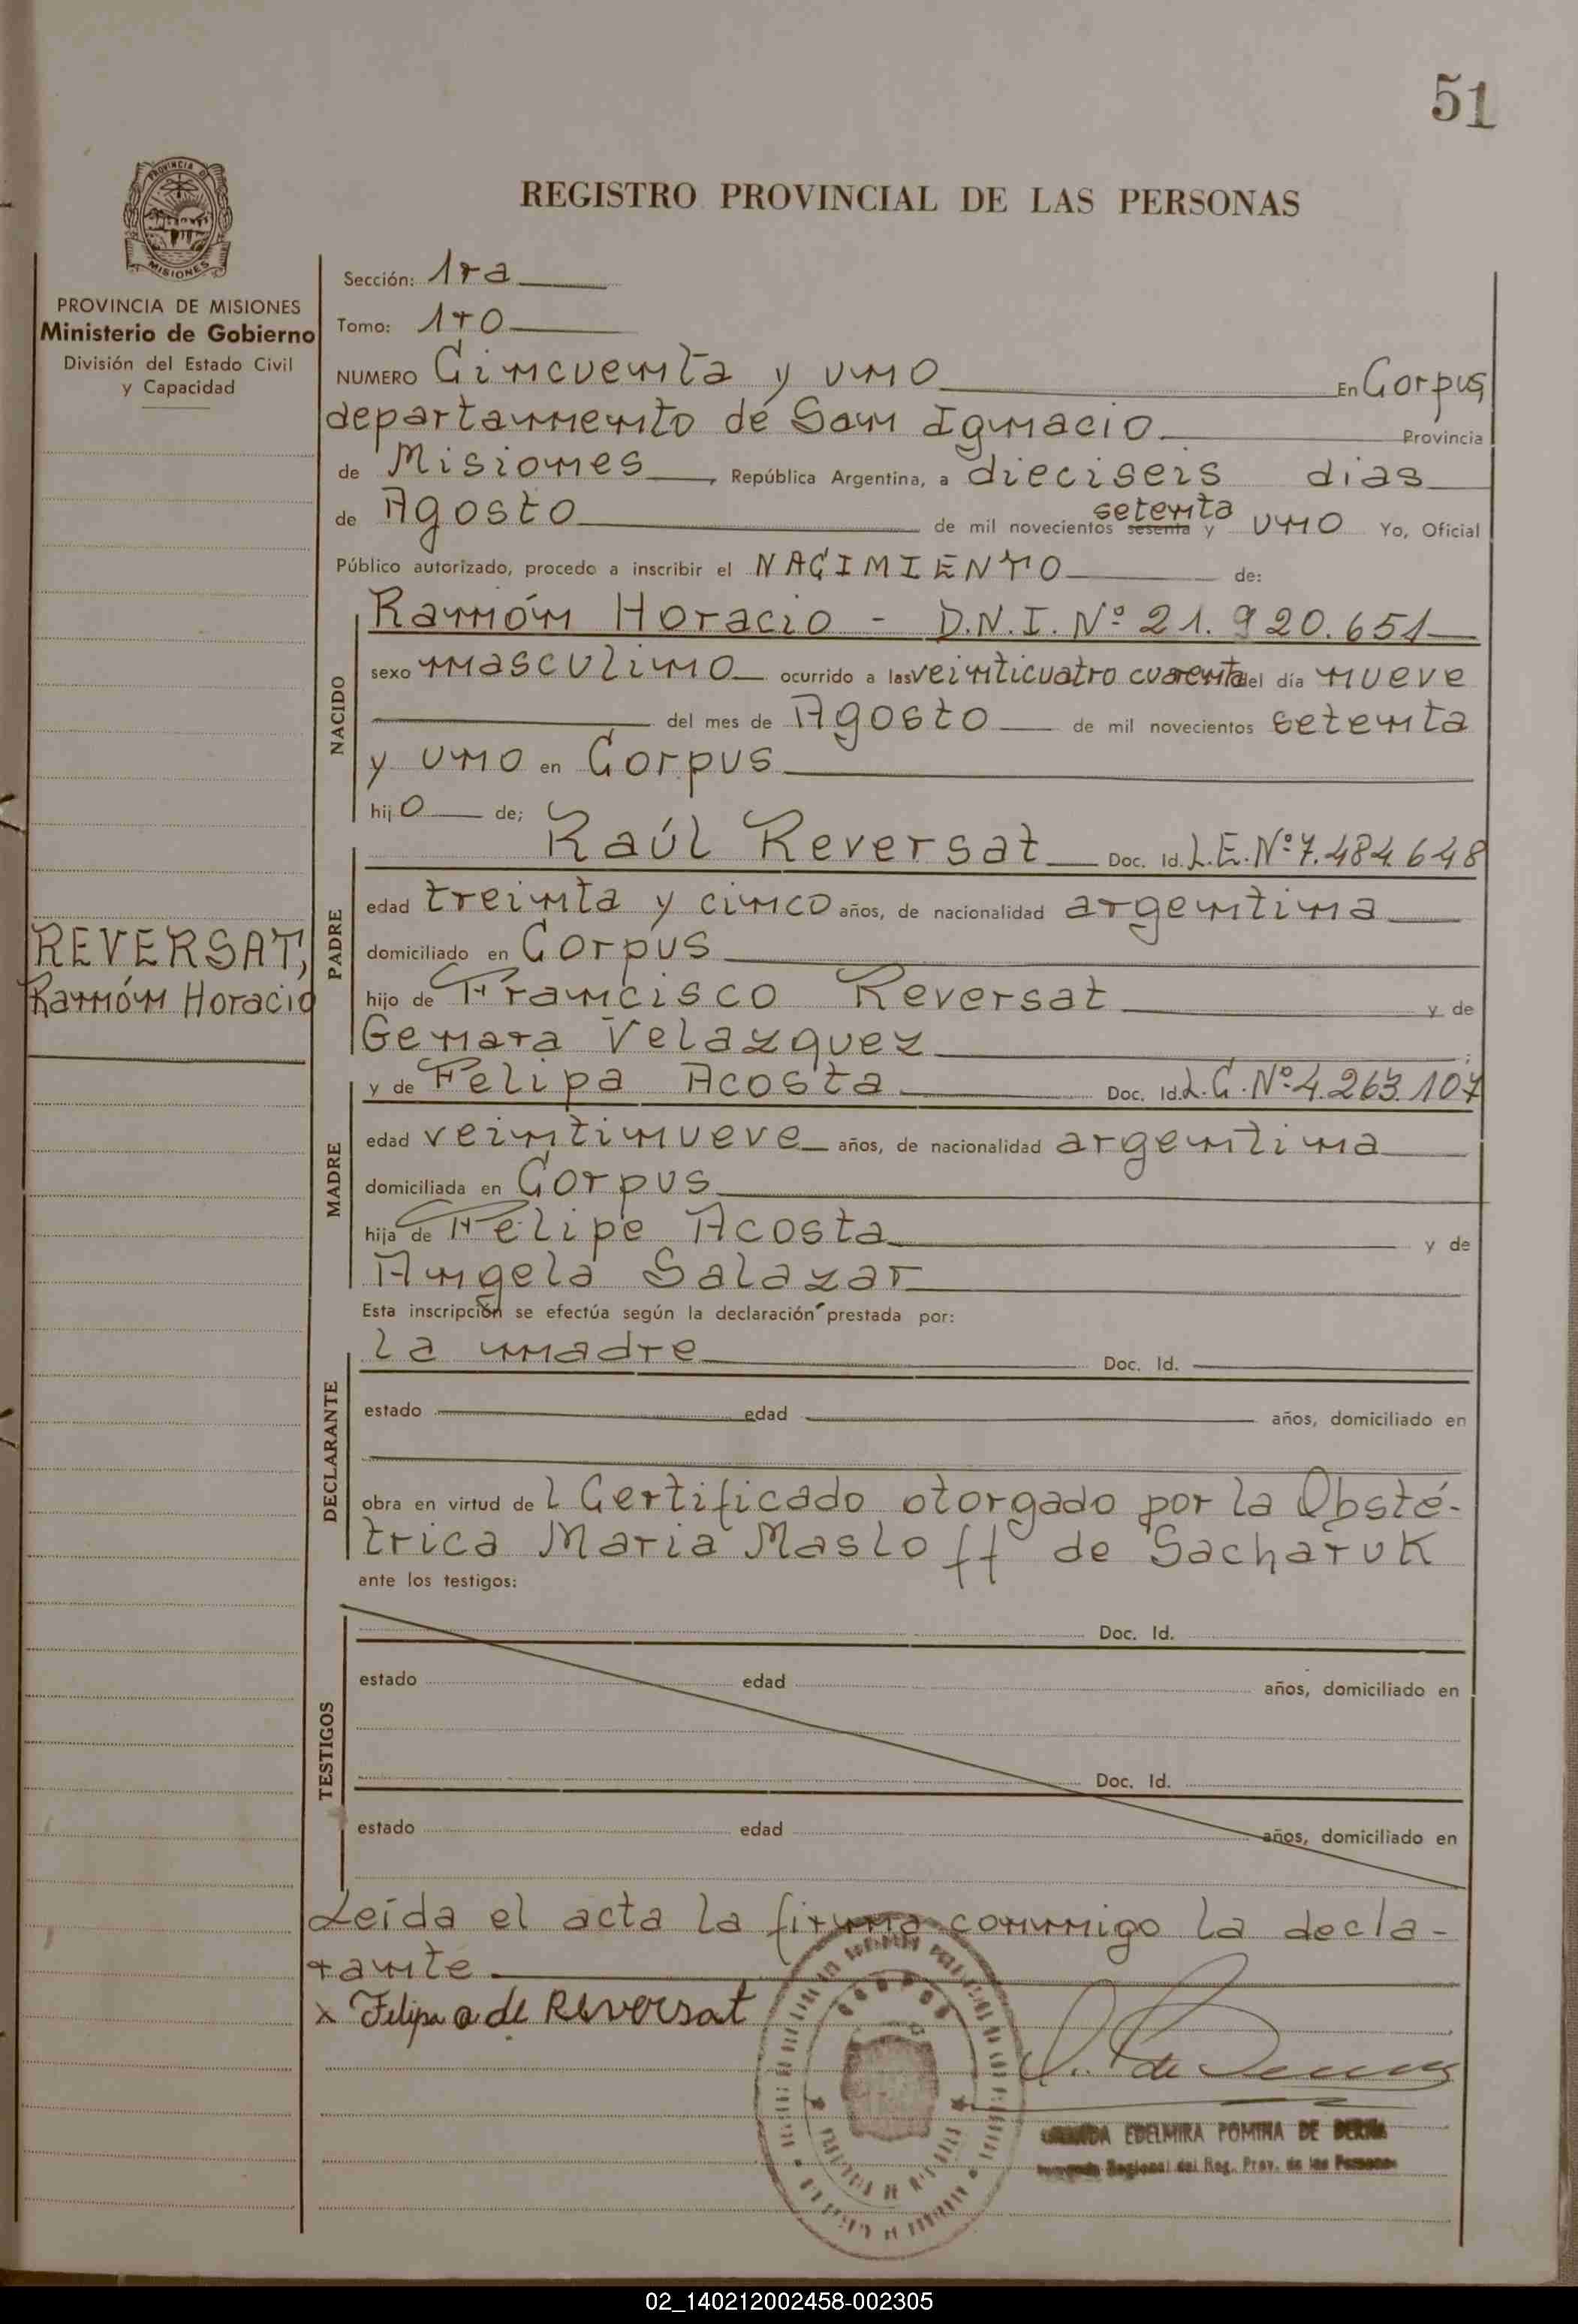 51
REGISTRO PROVINCIAL DE LAS PERSONAS
PROVINCIA DE MISIONES
Ministerio de Gobierno
División del Estado Civil
y Capacidad
REVERSAT,
Ramón Horacio
Sección: 1ra
Tomo: 1ro
NUMERO Cincuenta y uno En Corpus,
departamento de San Ignacio Provincia
de Misiones, República Argentina, a dieciseis dias
de Agosto de mil novecientos sesenta setenta y uno Yo, Oficial
Público autorizado, procedo a inscribir el NACIMIENTO de:
NACIDO
Ramón Horacio - D.N.I. Nº 21.920.651
sexo masculino ocurrido a las veinticuatro cuarenta del día nueve
del mes de Agosto de mil novecientos setenta
y uno en Corpus
hijo de;
PADRE
Raúl Reversat Doc. Id. L.E. Nº 7.484.648
edad treinta y cinco años, de nacionalidad argentina
domiciliado en Corpus
hijo de Francisco Reversat y de
Genara Velazquez ;
MADRE
y de Felipa Acosta Doc. Id. L.C. Nº 4.263.107
edad veintinueve años, de nacionalidad argentina
domiciliada en Corpus
hija de Felipe Acosta y de
Angela Salazar
Esta inscripción se efectúa según la declaración prestada por:
DECLARANTE
la madre Doc. Id.
estado edad años, domiciliado en
obra en virtud del Certificado otorgado por la Obsté-
trica Maria Masloff de Sacharuk
ante los testigos:
TESTIGOS
Doc. Id.
estado edad años, domiciliado en
Doc. Id.
estado edad años, domiciliado en
Leída el acta la firma conmigo la decla-
rante
x Felipa a de Reversat
EDELMIRA POMINA DE
Regional del Reg. Prov. de las Personas
02_140212002458-002305